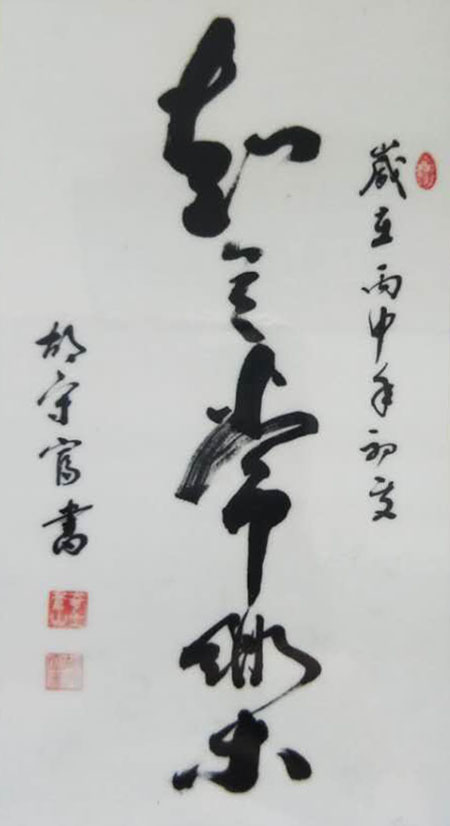 歲在丙申年初夏
知足常樂
胡守富書